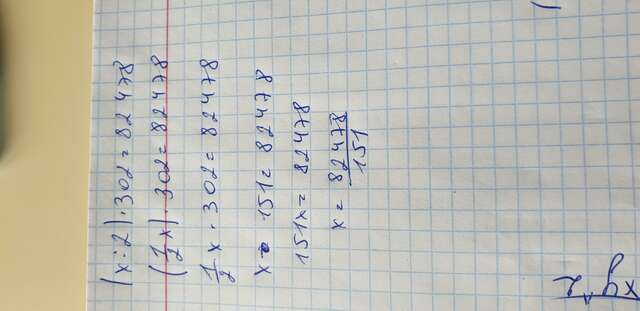 (x:2)·302=82478
(1/2 x)·302=82478
1/2 x·302=82478
x·151=82478
151x=82478
x=82478/151